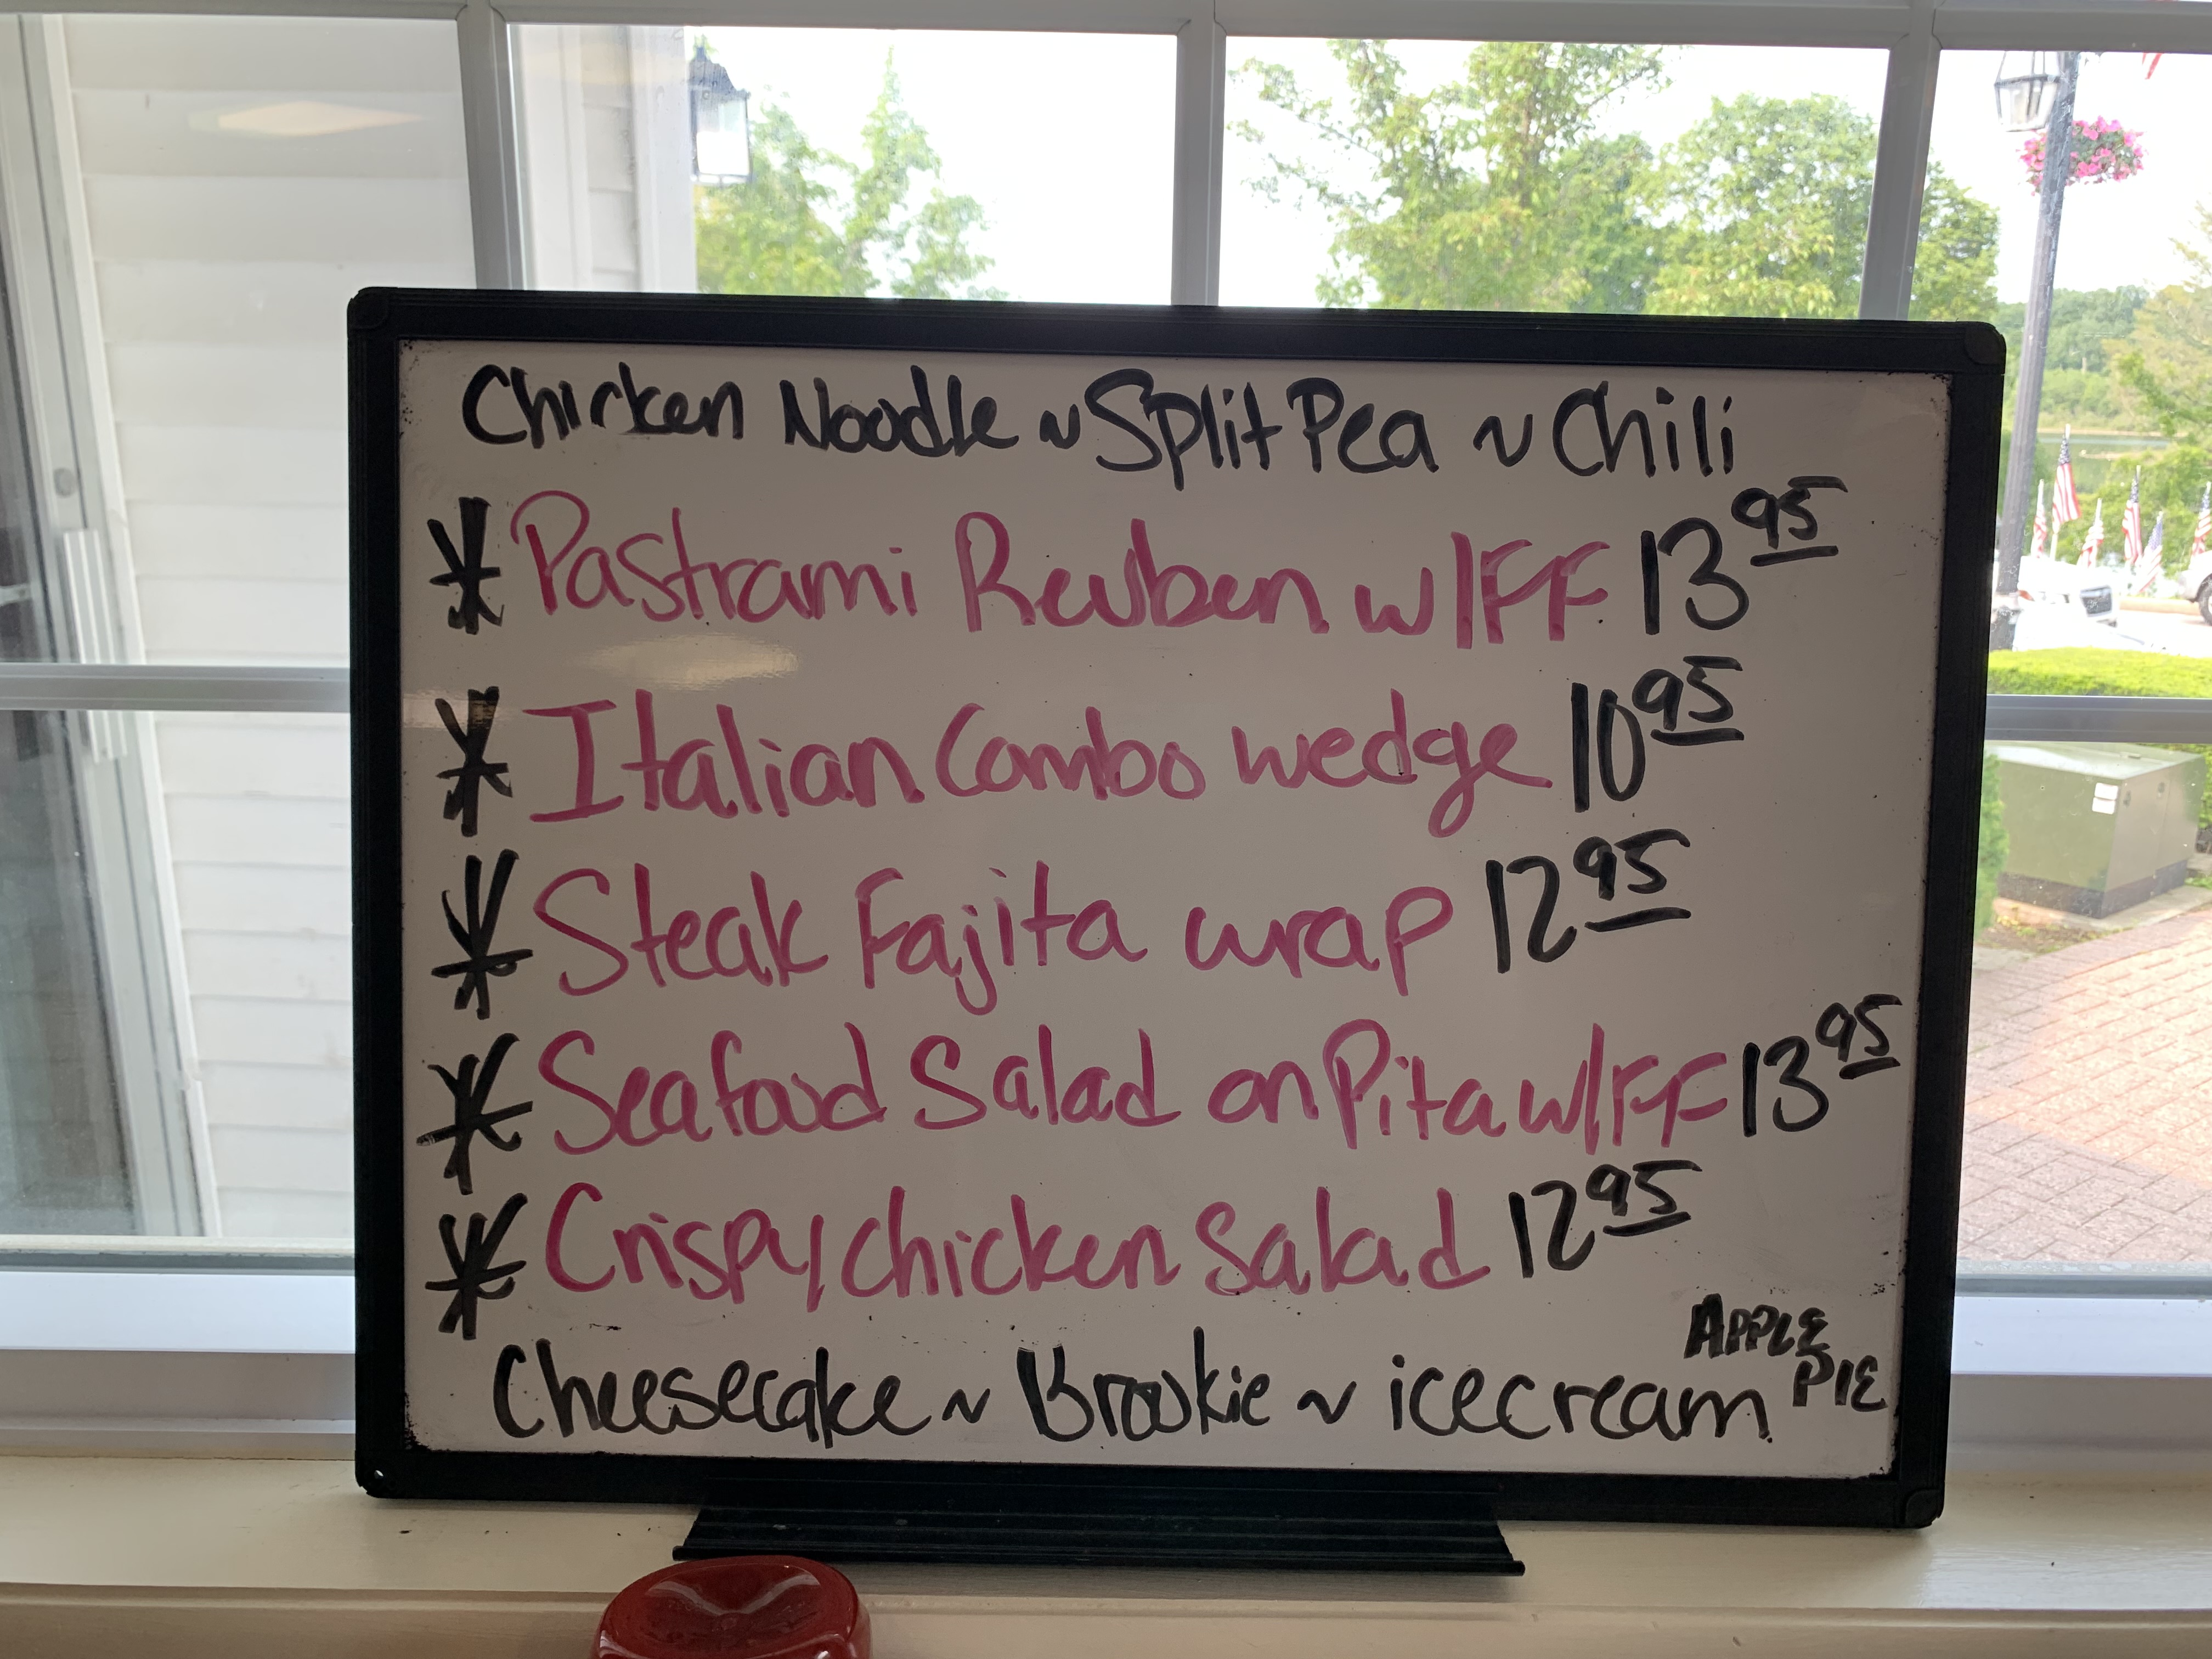 Chicken Noodle ~ Split Pea ~ Chili
* Pastrami Reuben w/FF 13 95
* Italian Combo wedge 10 95
* Steak Fajita wrap 12 95
* Seafood Salad on Pita w/FF 13 95
* Crispy chicken Salad 12 95
Cheesecake ~ Brookie ~ icecream APPLE PIE